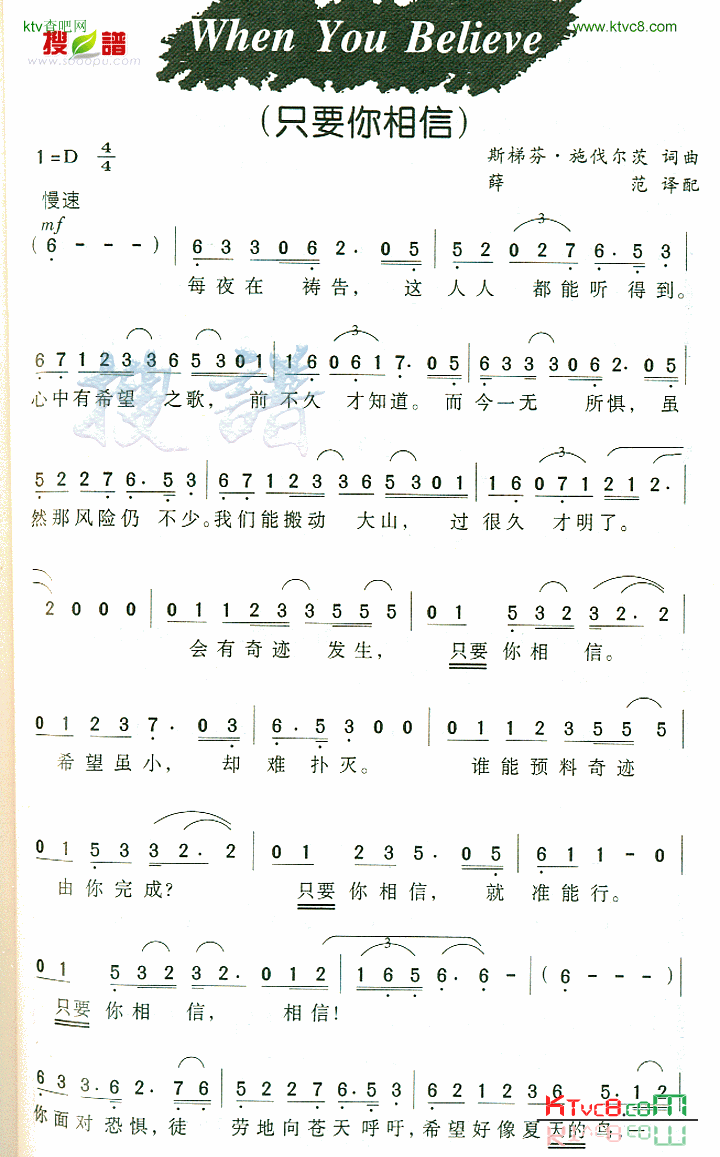 ktv查吧网
www.ktvc8.com
搜譜
www.sooopu.com
When You Believe
(只要你相信)
1=D 4/4
斯梯芬·施伐尔茨 词曲
薛 范 译配
慢速
mf
(6 - - -) | 6 3 3 0 6 2. 0 5 | 5 2 0 2 7 6. 5 3 |
每夜在 祷告, 这 人人 都能听得到。
6 7 1 2 3 3 6 5 3 0 1 | 1 6 0 6 1 7. 0 5 | 6 3 3 3 0 6 2. 0 5 |
心中有希望 之歌, 前 不久 才知道。而 今一无 所惧, 虽
5 2 2 7 6. 5 3 | 6 7 1 2 3 3 6 5 3 0 1 | 1 6 0 7 1 2 1 2. |
然那风险仍 不少。我们能搬动 大山, 过 很久 才明了。
2 0 0 0 | 0 1 1 2 3 3 5 5 5 | 0 1 5 3 2 3 2. 2 |
会有奇迹 发生, 只要 你相 信。
0 1 2 3 7. 0 3 | 6. 5 3 0 0 | 0 1 1 2 3 5 5 5 |
希望虽小, 却 难 扑灭。 谁能预料奇迹
0 1 5 3 3 2. 2 | 0 1 2 3 5. 0 5 | 6 1 1 - 0
由你完成? 只要 你相信, 就 准能行。
0 1 5 3 2 3 2. 0 1 2 | 1 6 5 6. 6 - | (6 - -) |
只要 你相 信, 相信!
6 3 3. 6 2. 7 6 | 5 2 2 7 6. 5 3 | 6 2 1 2 3 6 5. 1 2 |
你面对恐惧,徒 劳地向苍天呼吁,希望好像夏天的鸟,一
KTvc8.com